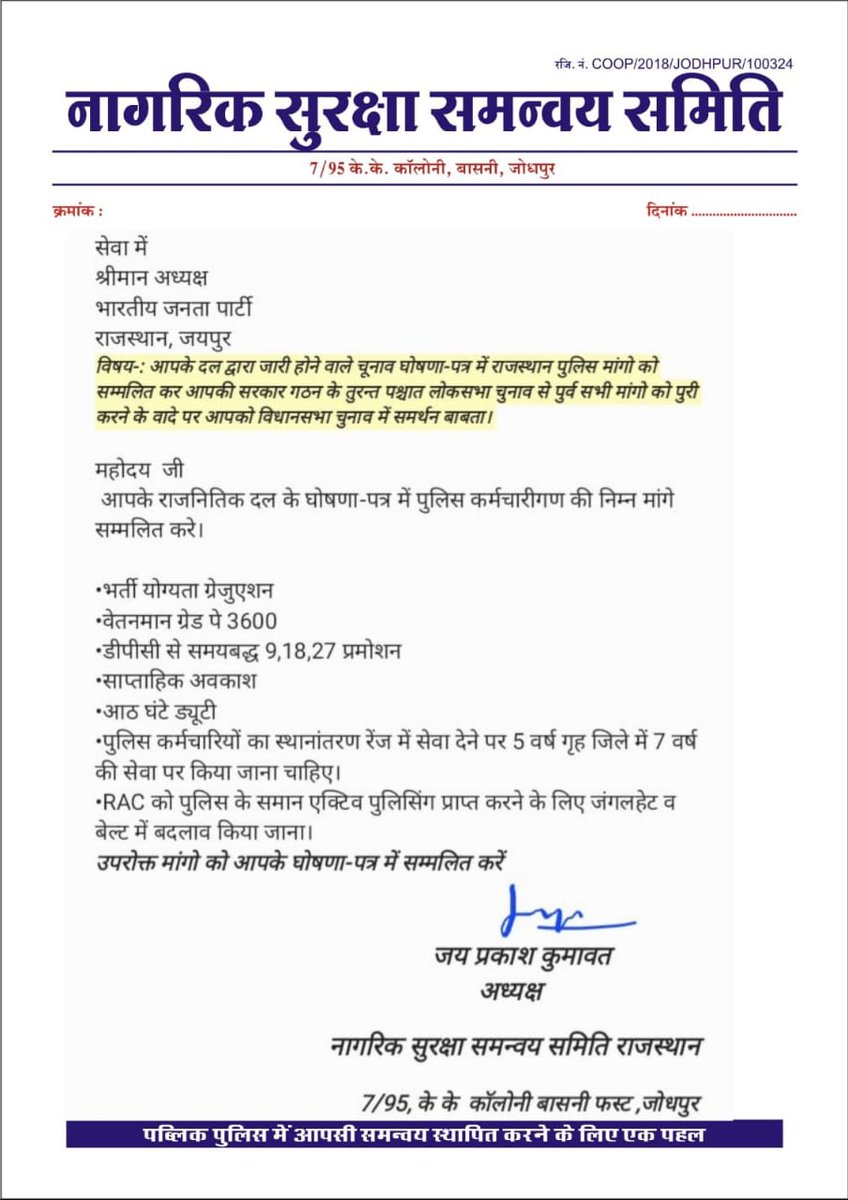 रजि. नं. COOP/2018/JODHPUR/100324
नागरिक सुरक्षा समन्वय समिति
7/95 के.के. कॉलोनी, बासनी, जोधपुर
क्रमांक :
दिनांक ..............................
सेवा में
श्रीमान अध्यक्ष
भारतीय जनता पार्टी
राजस्थान, जयपुर
विषय-: आपके दल द्वारा जारी होने वाले चूनाव घोषणा-पत्र में राजस्थान पुलिस मांगो को
सम्मलित कर आपकी सरकार गठन के तुरन्त पश्चात लोकसभा चुनाव से पुर्व सभी मांगो को पुरी
करने के वादे पर आपको विधानसभा चुनाव में समर्थन बाबता।
महोदय जी
आपके राजनितिक दल के घोषणा-पत्र में पुलिस कर्मचारीगण की निम्न मांगे
सम्मलित करे।
•भर्ती योग्यता ग्रेजुएशन
•वेतनमान ग्रेड पे 3600
•डीपीसी से समयबद्ध 9,18,27 प्रमोशन
•साप्ताहिक अवकाश
•आठ घंटे ड्यूटी
•पुलिस कर्मचारियों का स्थानांतरण रेंज में सेवा देने पर 5 वर्ष गृह जिले में 7 वर्ष
की सेवा पर किया जाना चाहिए।
•RAC को पुलिस के समान एक्टिव पुलिसिंग प्राप्त करने के लिए जंगलहेट व
बेल्ट में बदलाव किया जाना।
उपरोक्त मांगो को आपके घोषणा-पत्र में सम्मलित करें
जय प्रकाश कुमावत
अध्यक्ष
नागरिक सुरक्षा समन्वय समिति राजस्थान
7/95, के के कॉलोनी बासनी फस्ट ,जोधपुर
पब्लिक पुलिस में आपसी समन्वय स्थापित करने के लिए एक पहल